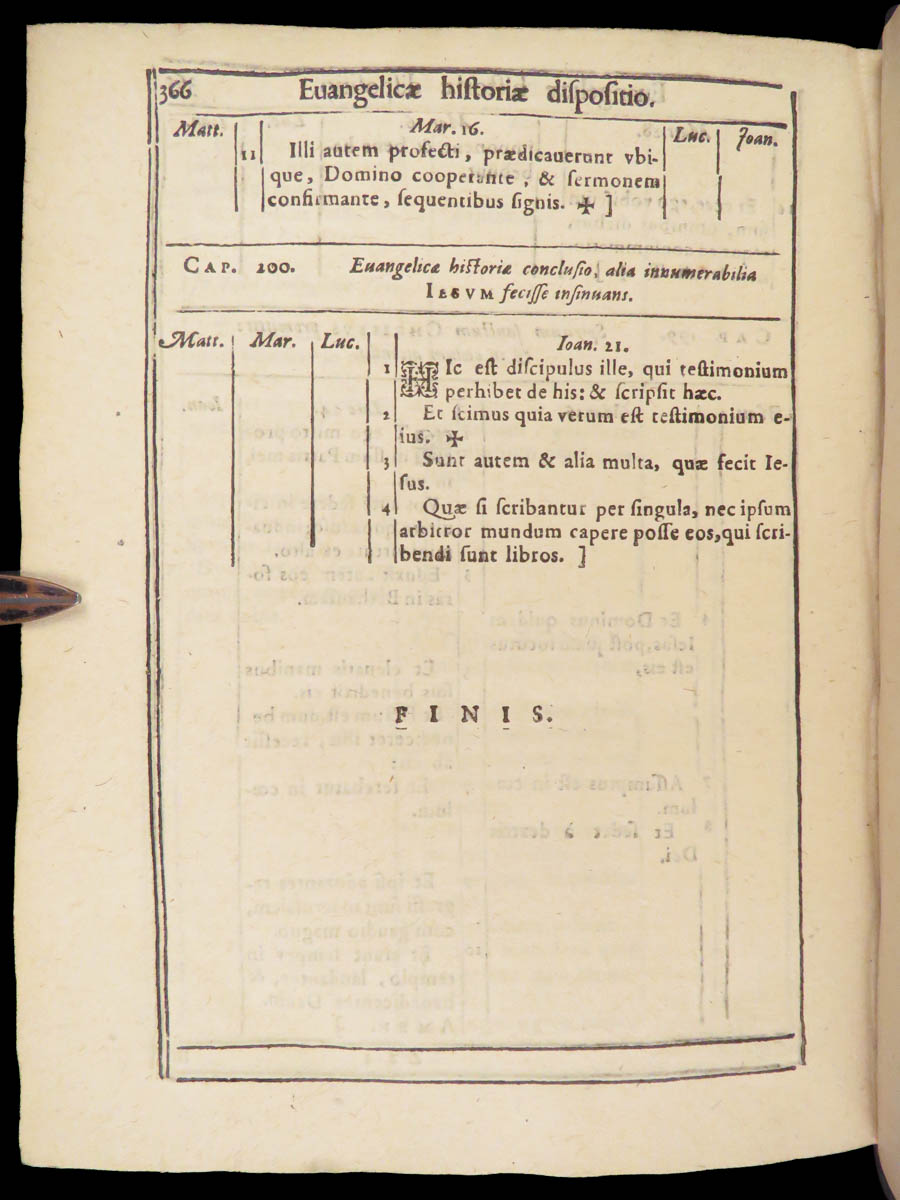 366 Euangelicæ hiſtoriæ diſpoſitio.
Matt. Mar. 16. Luc. Joan.
11 Illi autem profecti, prædicauerunt vbi-
que, Domino cooperante, & ſermonem
confirmante, ſequentibus ſignis. ✠ ]
CAP. 200. Euangelicæ hiſtoriæ concluſio, alia innumerabilia
IESVM feciſſe inſinuans.
Matt. Mar. Luc. Ioan. 21.
1 HIc eſt diſcipulus ille, qui teſtimonium
perhibet de his: & ſcripſit hæc.
2 Et ſcimus quia verum eſt teſtimonium e-
ius. ✠
3 Sunt autem & alia multa, quæ fecit Ie-
ſus.
4 Quæ ſi ſcribantur per ſingula, nec ipſum
arbitror mundum capere poſſe eos, qui ſcri-
bendi ſunt libros. ]
FINIS.